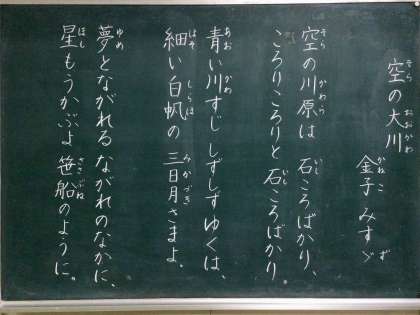 空の大川
金子 みすゞ
空の川原は 石ころばかり、
ころりころりと 石ころばかり。
青い川すじ しずしずゆくは、
細い白帆の 三日月さまよ。
夢とながれる ながれのなかに、
星もうかぶよ 笹船のように。